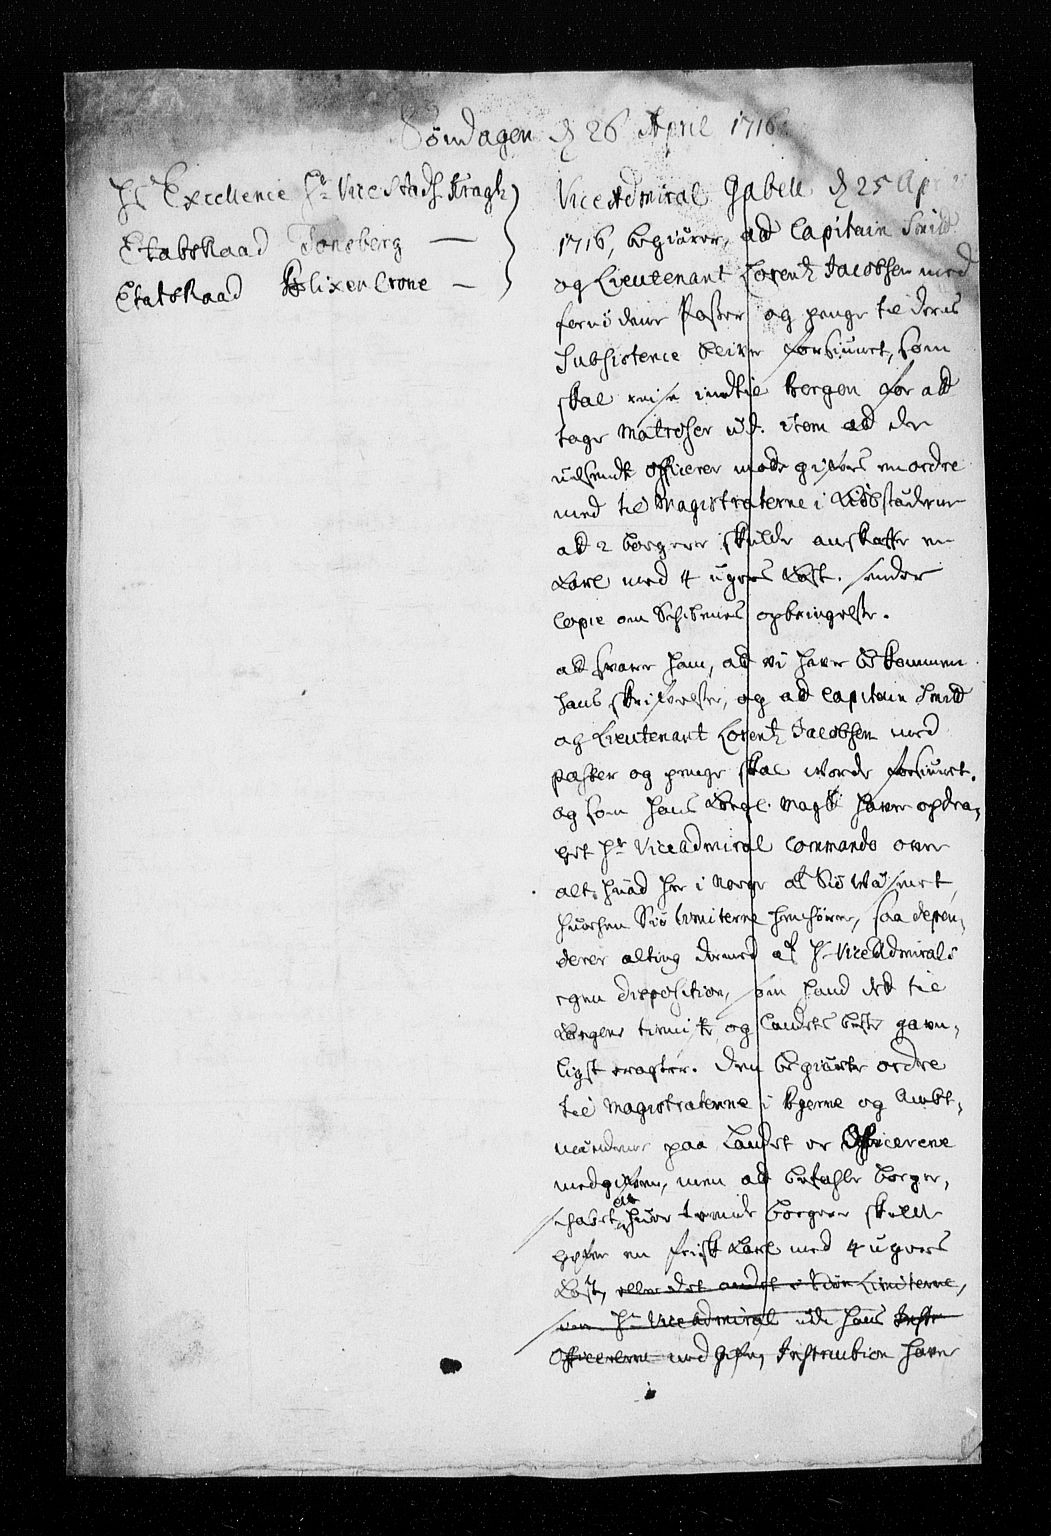 Søndagen d 26 April 1716
Hs Excellence Hr Vice Stadh. Kragh
EtatsRaad Tonsberg —
EtatsRaad Blixencrone —
ViceAdmiral Gabell d 25 April
1716, begiærer, ad Capitain Smidt
og Lieutenant Lorentz Jacobsen med
fornødene Passer og penge til deres
Subsistence bliver forsiunet, som
skal reise ind til Bergen for att
tage Matroser ud. item ad de
udsendte Officerer motte gifves en ordre
med til Magistraterne i Kiøbstæderne
att 2 borgere skulde anskaffe en
Karl med 4 ugers Kost. sender
Copie om Schibenes opbringelse.
att svare ham, ad vi hafver bekommen
hans skrifvelse, og ad Capitain Smidt
og Lieutenant Lorentz Jacobsen med
passer og penge skal worde forsiunet.
og som hans Kongl. Maytt hafver opdra,
get Hr ViceAdmiral Commando over
alt, hvad her i Norge af Siø Wæsenet
hvorhen Siø limiterne henhører, saa depen,
derer alting dermed af Hr ViceAdmirals
egen disposition, som hand det til
Kongens tieniste og Landets beste gavn,
ligst eragter. den begiærte ordre
til Magistraterne i byerne og Ambt,
mændene paa Landet er Officererne
medgifven, men att befahle borger,
schabet at hver tvende borgere skulle
hafve en frisk Karl med 4 ugers
Kost, eller det andet i Siøe Limiterne,
som Hr ViceAdmiral udi hans
Officererne med gifne Instruktion hafver